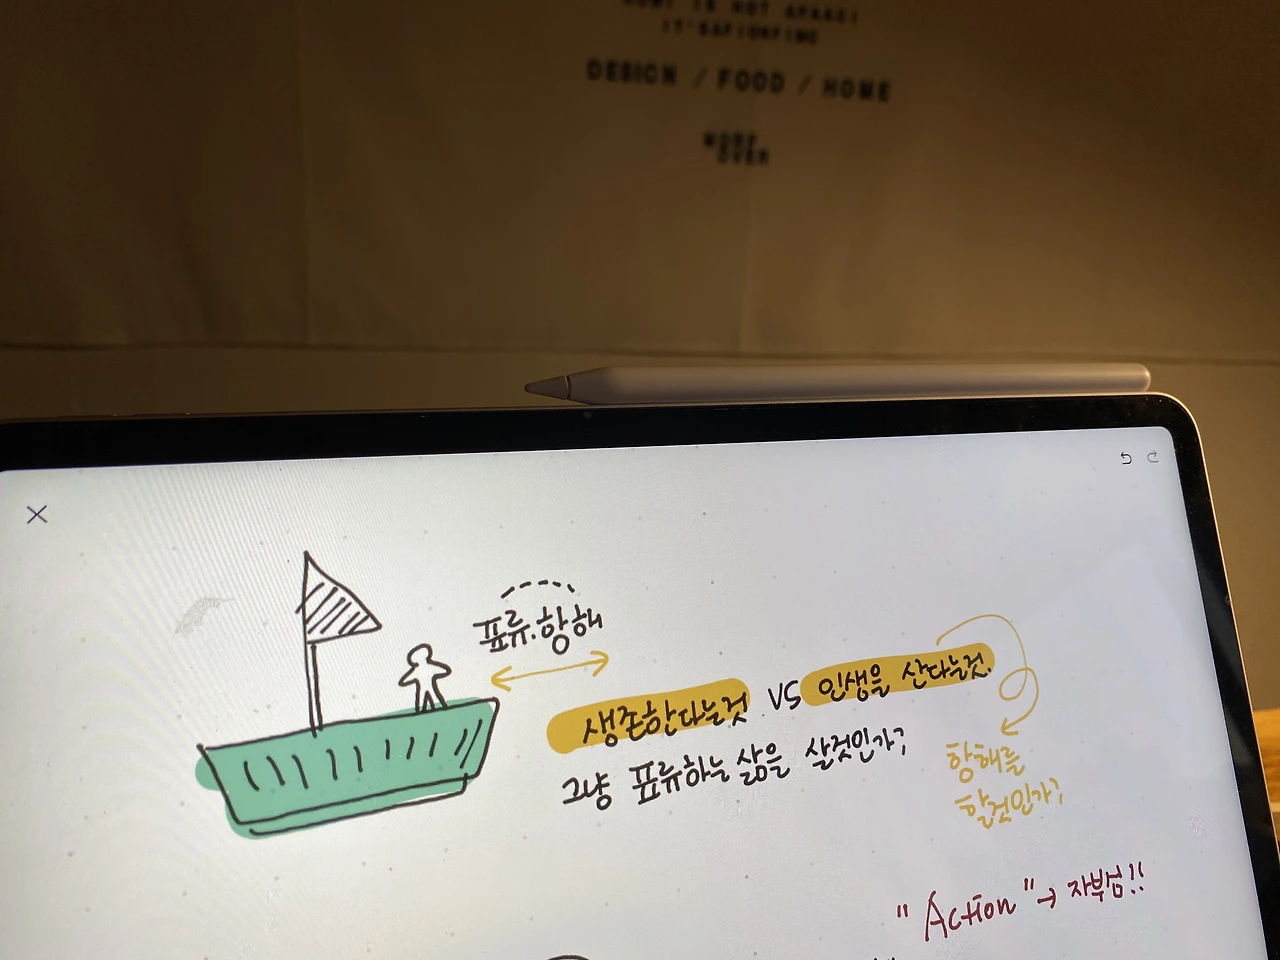 DESIGN / FOOD / HOME
MORE
OVER
표류.항해
생존한다는것 VS 인생을 산다는것.
그냥 표류하는 삶을 살것인가?
항해를
할것인가?
"Action" → 자부심!!